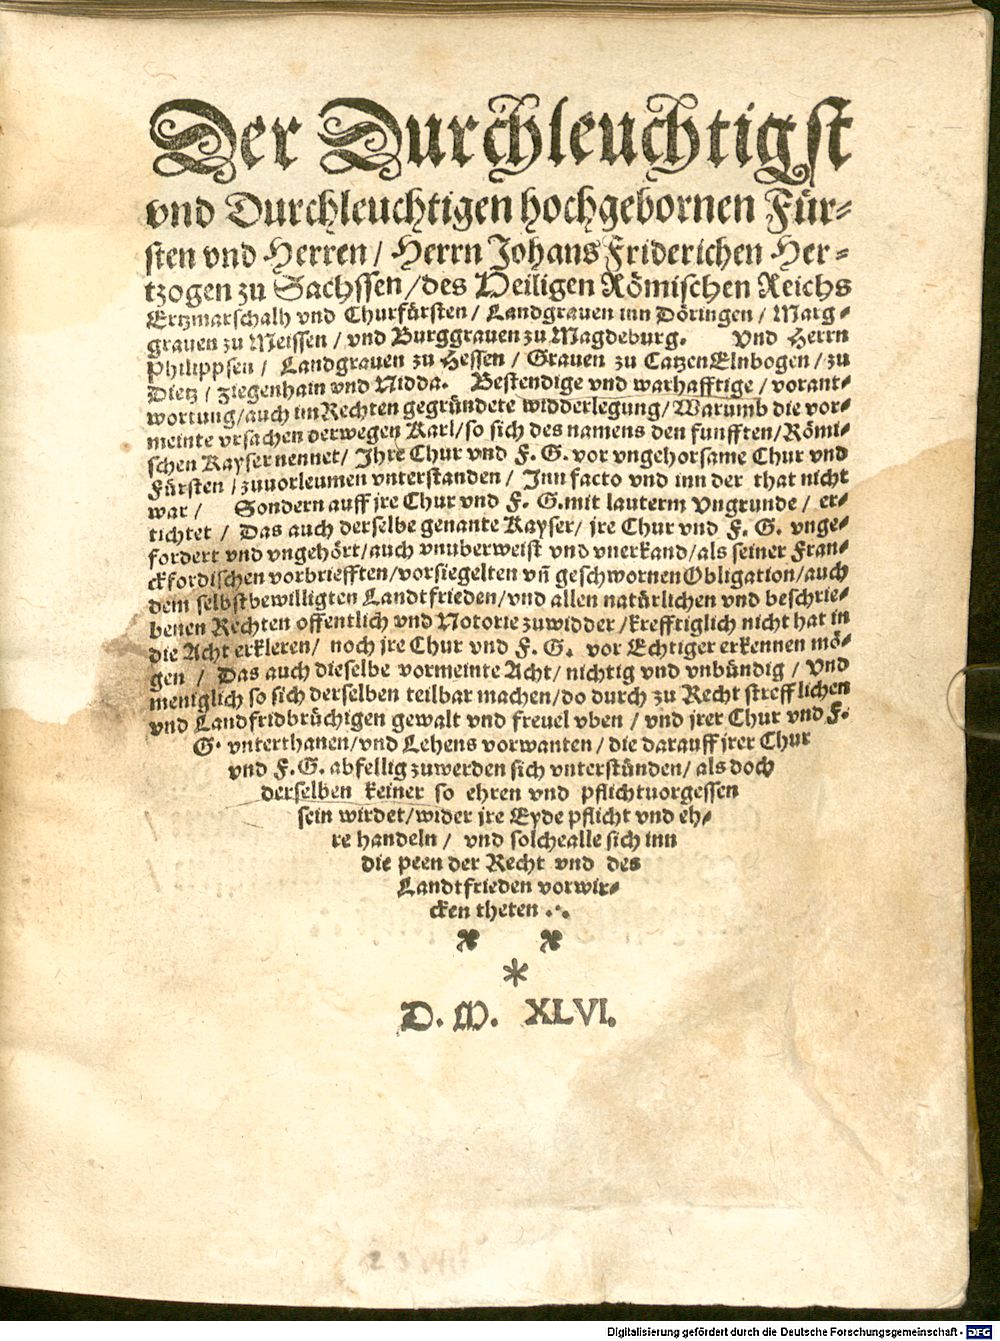 Der Durchleuchtigst
vnd Durchleuchtigen hochgebornen Für-
sten vnd Herren / Herrn Johans Friderichen Her-
tzogen zu Sachssen / des Heiligen Römischen Reichs
Ertzmarschalh vnd Churfürsten / Landgrauen inn Döringen / Marg-
grauen zu Meissen / vnd Burggrauen zu Magdeburg. Vnd Herrn
Philippsen / Landgrauen zu Hessen / Grauen zu CatzenElnbogen / zu
Dietz / Ziegenhain vnd Nidda. Bestendige vnd warhafftige / vorant-
wortung / auch im Rechten gegründete widderlegung / Warumb die vor-
meinte vrsachen derwegen Karl / so sich des namens den funfften / Römi-
schen Kayser nennet / Ihre Chur vnd F. G. vor vngehorsame Chur vnd
Fürsten / zuuorleumen vnterstanden / Inn facto vnd inn der that nicht
war / Sondern auff jre Chur vnd F. G. mit lauterm Vngrunde / er-
tichtet / Das auch derselbe genante Kayser / jre Chur vnd F. G. vnge-
fordert vnd vngehört / auch vnuberweist vnd vnerkand / als seiner Fran-
ckfordischen vorbriefften / vorsiegelten vñ geschwornen Obligation / auch
dem selbstbewilligten Landtfrieden / vnd allen natürlichen vnd beschrie-
benen Rechten offentlich vnd Notorie zuwidder / krefftiglich nicht hat in
die Acht erkleren / noch jre Chur vnd F. G. vor Echtiger erkennen mö-
gen / Das auch dieselbe vormeinte Acht / nichtig vnd vnbündig / Vnd
meniglich so sich derselben teilbar machen / do durch zu Recht strefflichen
vnd Landfridbrüchigen gewalt vnd freuel vben / vnd jrer Chur vnd F.
G. vnterthanen / vnd Lehens vorwanten / die darauff jrer Chur
vnd F. G. abfellig zuwerden sich vnterstünden / als doch
derselben keiner so ehren vnd pflichtuorgessen
sein wirdet / wider jre Eyde pflicht vnd eh-
re handeln / vnd solchealle sich inn
die peen der Recht vnd des
Landtfrieden vorwir-
cken theten
*
D. M. XLVI.
Digitalisierung gefördert durch die Deutsche Forschungsgemeinschaft - DFG